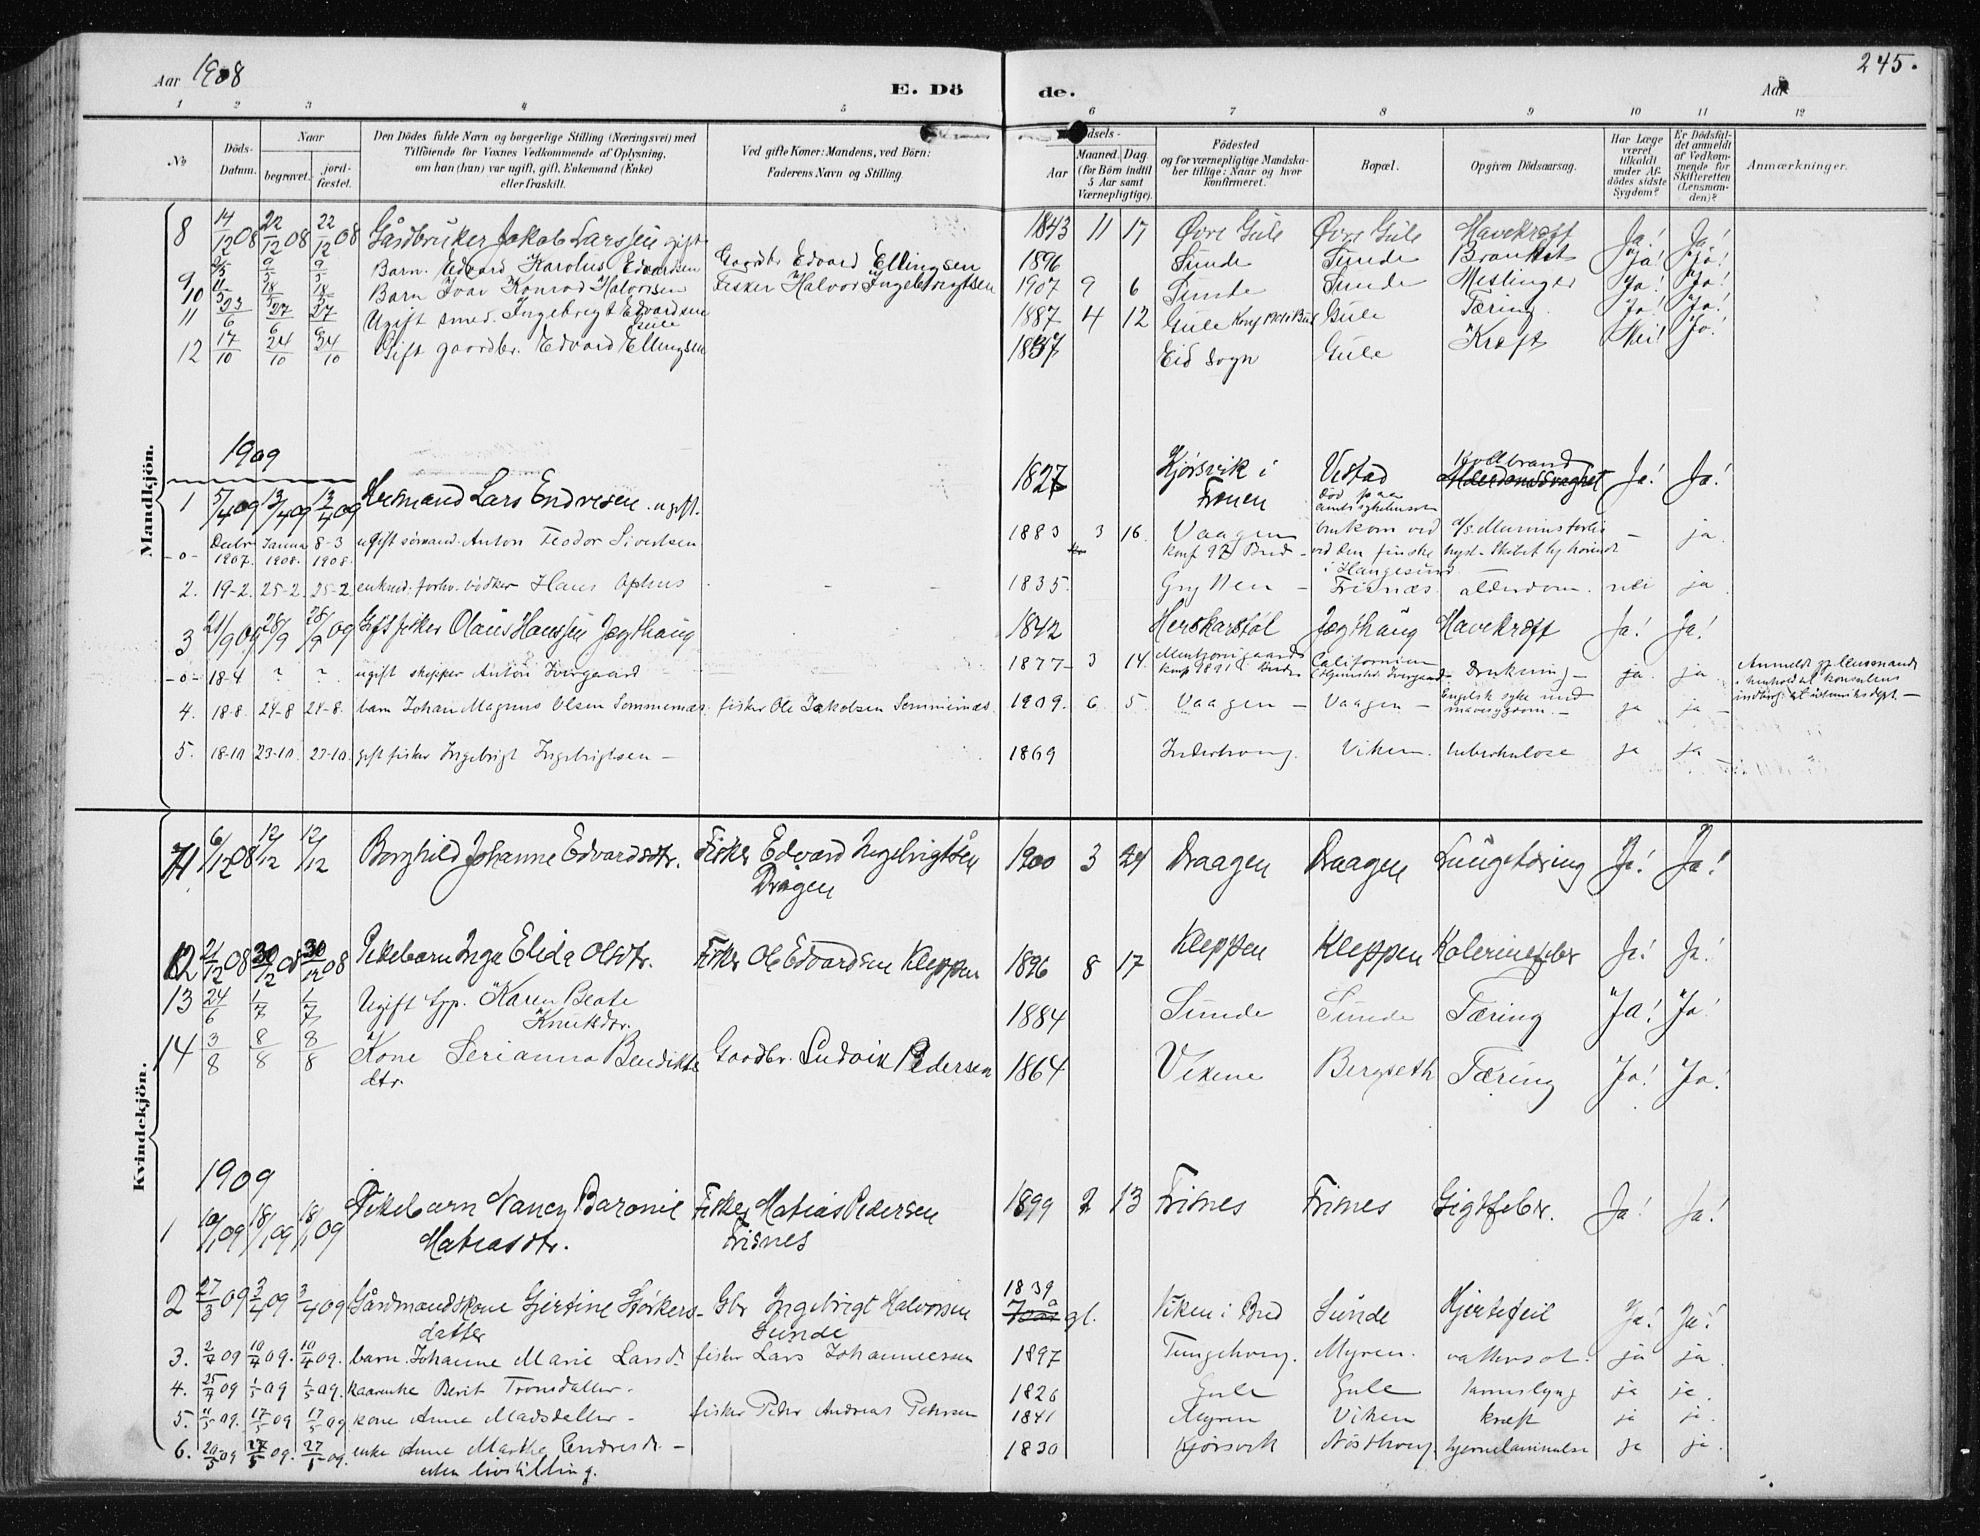 Aar 1908
E. Dö
de.
Aar
245.
1 2 3 4 5 6 7 8 9 10 11 12
No
Döds-
Datum.
Naar
begravet.
jord-
fæstet.
Den Dödes fulde Navn og borgerlige Stilling (Næringsvei) med
Tilföiende for Voxnes Vedkommende af Oplysning,
om han (hun) var ugift, gift, Enkemand (Enke)
eller fraskilt.
Ved gifte Koner: Mandens, ved Börn:
Faderens Navn og Stilling.
Aar
Maaned. Dag.
(for Börn indtil
5 Aar samt
Værnepligtige).
Födested
og for værnepligtige Mandska-
ber tillige: Naar og hvor
konfirmeret.
Bopæl.
Opgiven Dödsaarsag.
Har Læge
været
tilkaldt
under Af-
dödes sidste
Sygdom?
Er Dödsfal-
det anmeldt
af Vedkom-
mende for
Skifteretten
(Lensman-
den)?
Anmærkninger.
Mandkjön.
8 14/12 08 22/12 08 22/12 08 Gårdbruker Jakob Larssen gift 1843 11 17 Øvre Gule Øvre Gule Mavekræft Ja! Ja!
9 Barn. Edvard Karolius Edvardsen Gaardbr Edvard Ellingsen 1896 Sunde Sunde Ja! Ja!
10 Barn Ivar Konrad Halvorsen Fisker Halvor Ingebrigtsen 1907 9 6 Sunde Sunde Meslinger Ja! Ja!
11 23/6 27/6 27/6 Ugift smed. Ingebrigt Edvardsen Gule 1887 4 12 Gule Gule Tæring. Ja! Ja!
12 17/10 24/10 24/10 Gift gaardbr. Edvard Ellingsen 1837 Eid sogn Gule Kræft Nei! Ja!
1909
1 5/4 09 13/4 09 13/4 09 Lars Endresen ugift. 1827 Kjørsvik i Frænen Vestad død paa amtssykehuset Koldbrand Ja! Ja!
-o- Decbr 1907. Januar 1908. 8-3 1908. ugift sømand. Anton Teodor Sivertsen 1883 3 16 Vaagen konf 97 Bud omkom ved ved den finske i Hangesund - ja
2. 19-2. 25-2. 25-2. enkmd. forhv. bødker Hans Ophus - - 1835. Gryllen - Frisnæs alderdom. nei ja
3 21/9 09 28/9 28/9 09 Gift fisker Olaus Hanssen Jægthaug 1842 Herskarstøl Jægthaug Mavekræft Ja! Ja!
-o- 18-4 ? ? ugift skipper Anton Ivergaard - 1877 - 3 14. konf 1891 i Bud Californien Drukning - ja ja Anmeldt
4. 18-8. 24-8 24-8. barn Johan Magnus Olsen Sommernæs. fisker Ole Jakobsen Sommernæs 1909. 6. 5. Vaagen - Vaagen - Engelsk syke med mavesygdom. - ja ja -
5. 18-10 23-10. 23-10. gift fisker Ingebrigt Ingebrigtsen - 1869 Inderhaug. Viken. tuberkulose ja ja -
Kvindekjön.
11 6/12 08 12/12 12/12 Borghild Johanne Edvardsdtr. Fisker Edvard Ingebrigtsen Drågen 1900 3 24 Draagen Draagen Lungetæring Ja! Ja!
12 21/12 08 30/12 08 30/12 08 Pikebarn Inga Elida Olsdtr. Fisker Ole Edvardsen Kleppen 1896 8 17 Kleppen Kleppen Ja! Ja!
13 24/6 1/7 1/7 Ugift tjp. Karen Beate Knutsdtr. 1884 Sunde Sunde Tæring Ja! Ja!
14 3/8 8/8 8/8 Kone Serianna Bendikts dtr. Gaardbr. Ludvik Pedersen 1864 Vikene Bergseth Tæring Ja! Ja!
1909
1 10/1 09 18/1 09 18/1 09 Pikebarn Nancy Baronie Matiasdtr. Fisker Matias Pedersen Frisnes 1899 2 13 Frisnes Frisnes Gigtfeber. Ja! Ja!
2 27/3 09 3/4 09 3/4 09 Gårdmandskone Gjertine Størkers- datter Gbr Ingebrigt Halvorsen Sunde 1839 gl. Viken i Bud Sunde Hjertefeil Ja! Ja!
3. 2/4 09 10/4 09. 10/4 09. barn Johanne Marie Larsd. fisker Lars Johannessen 1897 Tungehaug. Myren. vattersot. ja ja.
4. 25/4 09 1/5 09 1/5 09. kaarenke Berit Tronsdatter. 1826 Gule Gule ja ja.
5. 11/5 09. 17/5 09 17/5 09. kone Anne Madsdatter - fisker Peder Andreas Petersen 1841 Myren Viken kræft ja ja.
6. 20/5 09 27/5 09. 27/5 09. enke Anne Marthe Endresd. - uden livsstilling. 1830 Kjørsvik Nøsthaug. hjernelammelse ja ja.